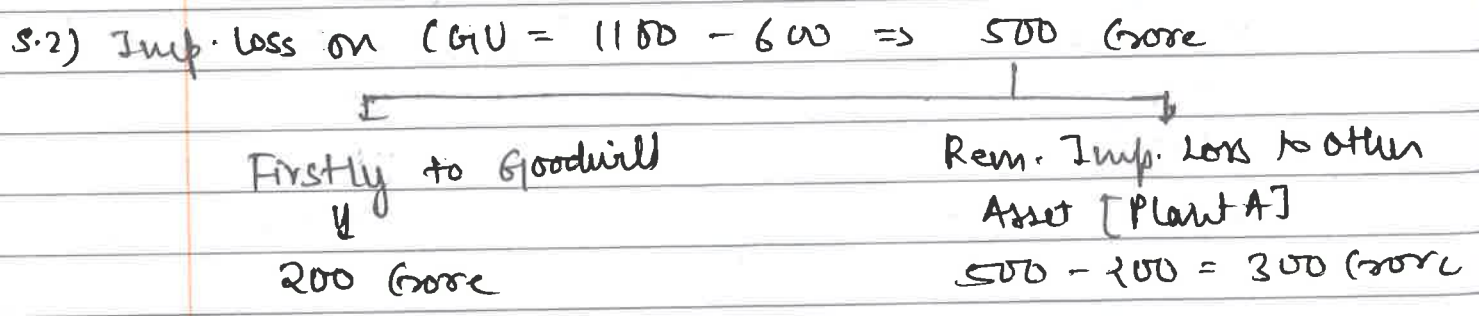 S.2) Imp. Loss on CGU = 1100 - 600 => 500 Crore
Firstly to Goodwill
Rem. Imp. Loss to other
Asset [Plant A]
200 Crore
500 - 200 = 300 Crore